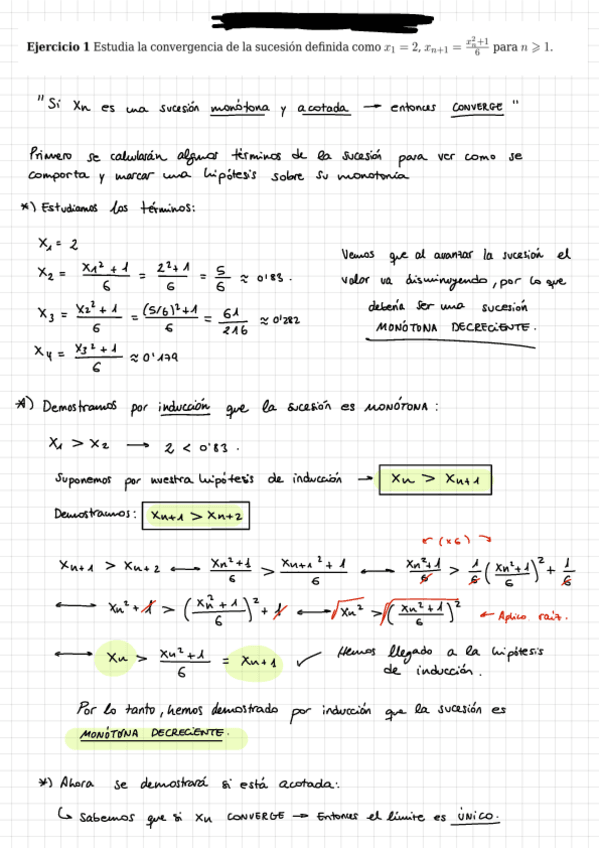 Ejercicio 1 Estudia la convergencia de la sucesión definida como x₁ = 2, xₙ₊₁ = (xₙ²+1)/6 para n ⩾ 1.
"Si Xn es una sucesión monótona y acotada → entonces CONVERGE"
Primero se calcularán algunos términos de la sucesión para ver como se
comporta y marcar una hipótesis sobre su monotonía
*) Estudiamos los términos:
X₁ = 2
X₂ = (X₁² + 1)/6 = (2² + 1)/6 = 5/6 ≈ 0'83.
X₃ = (X₂² + 1)/6 = ((5/6)² + 1)/6 = 61/216 ≈ 0'282
X₄ = (X₃² + 1)/6 ≈ 0'179
Vemos que al avanzar la sucesión el
valor va disminuyendo, por lo que
debería ser una sucesión
MONÓTONA DECRECIENTE.
*) Demostramos por inducción que la sucesión es MONÓTONA:
X₁ > X₂ → 2 < 0'83.
Suponemos por nuestra hipótesis de inducción → Xn > Xn+1
Demostramos: Xn+1 > Xn+2
← (x6) →
Xn+1 > Xn+2 ⟷ (Xn²+1)/6 > (Xn+1² + 1)/6 ⟷ (Xn²+1)/6 > 1/6 ((Xn²+1)/6)² + 1/6
⟷ Xn² + 1 > ((Xn² + 1)/6)² + 1 ⟷ √Xn² > √((Xn² + 1)/6)² ← Aplico raíz.
⟷ Xn > (Xn² + 1)/6 = Xn+1 ✓ Hemos llegado a la hipótesis
de inducción.
Por lo tanto, hemos demostrado por inducción que la sucesión es
MONÓTONA DECRECIENTE.
*) Ahora se demostrará si está acotada:
↳ Sabemos que si Xn CONVERGE → Entonces el límite es ÚNICO.